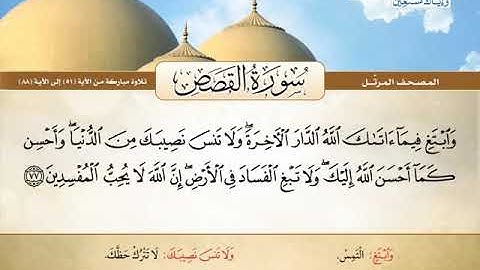 وإياك نستعين
المصحف المرتل
سُورَةُ القَصَصِ
تلاوة مباركة من الآية (٥١) إلى الآية (٨٨)
وَٱبْتَغِ فِيمَآ ءَاتَىٰكَ ٱللَّهُ ٱلدَّارَ ٱلْـَٔاخِرَةَ ۖ وَلَا تَنسَ نَصِيبَكَ مِنَ ٱلدُّنْيَا ۖ وَأَحْسِن
كَمَآ أَحْسَنَ ٱللَّهُ إِلَيْكَ ۖ وَلَا تَبْغِ ٱلْفَسَادَ فِى ٱلْأَرْضِ ۖ إِنَّ ٱللَّهَ لَا يُحِبُّ ٱلْمُفْسِدِينَ ٧٧
وَٱبْتَغِ: التَمِسْ.
وَلَا تَنسَ نَصِيبَكَ: لَا تَتْرُكْ حَظَّكَ.